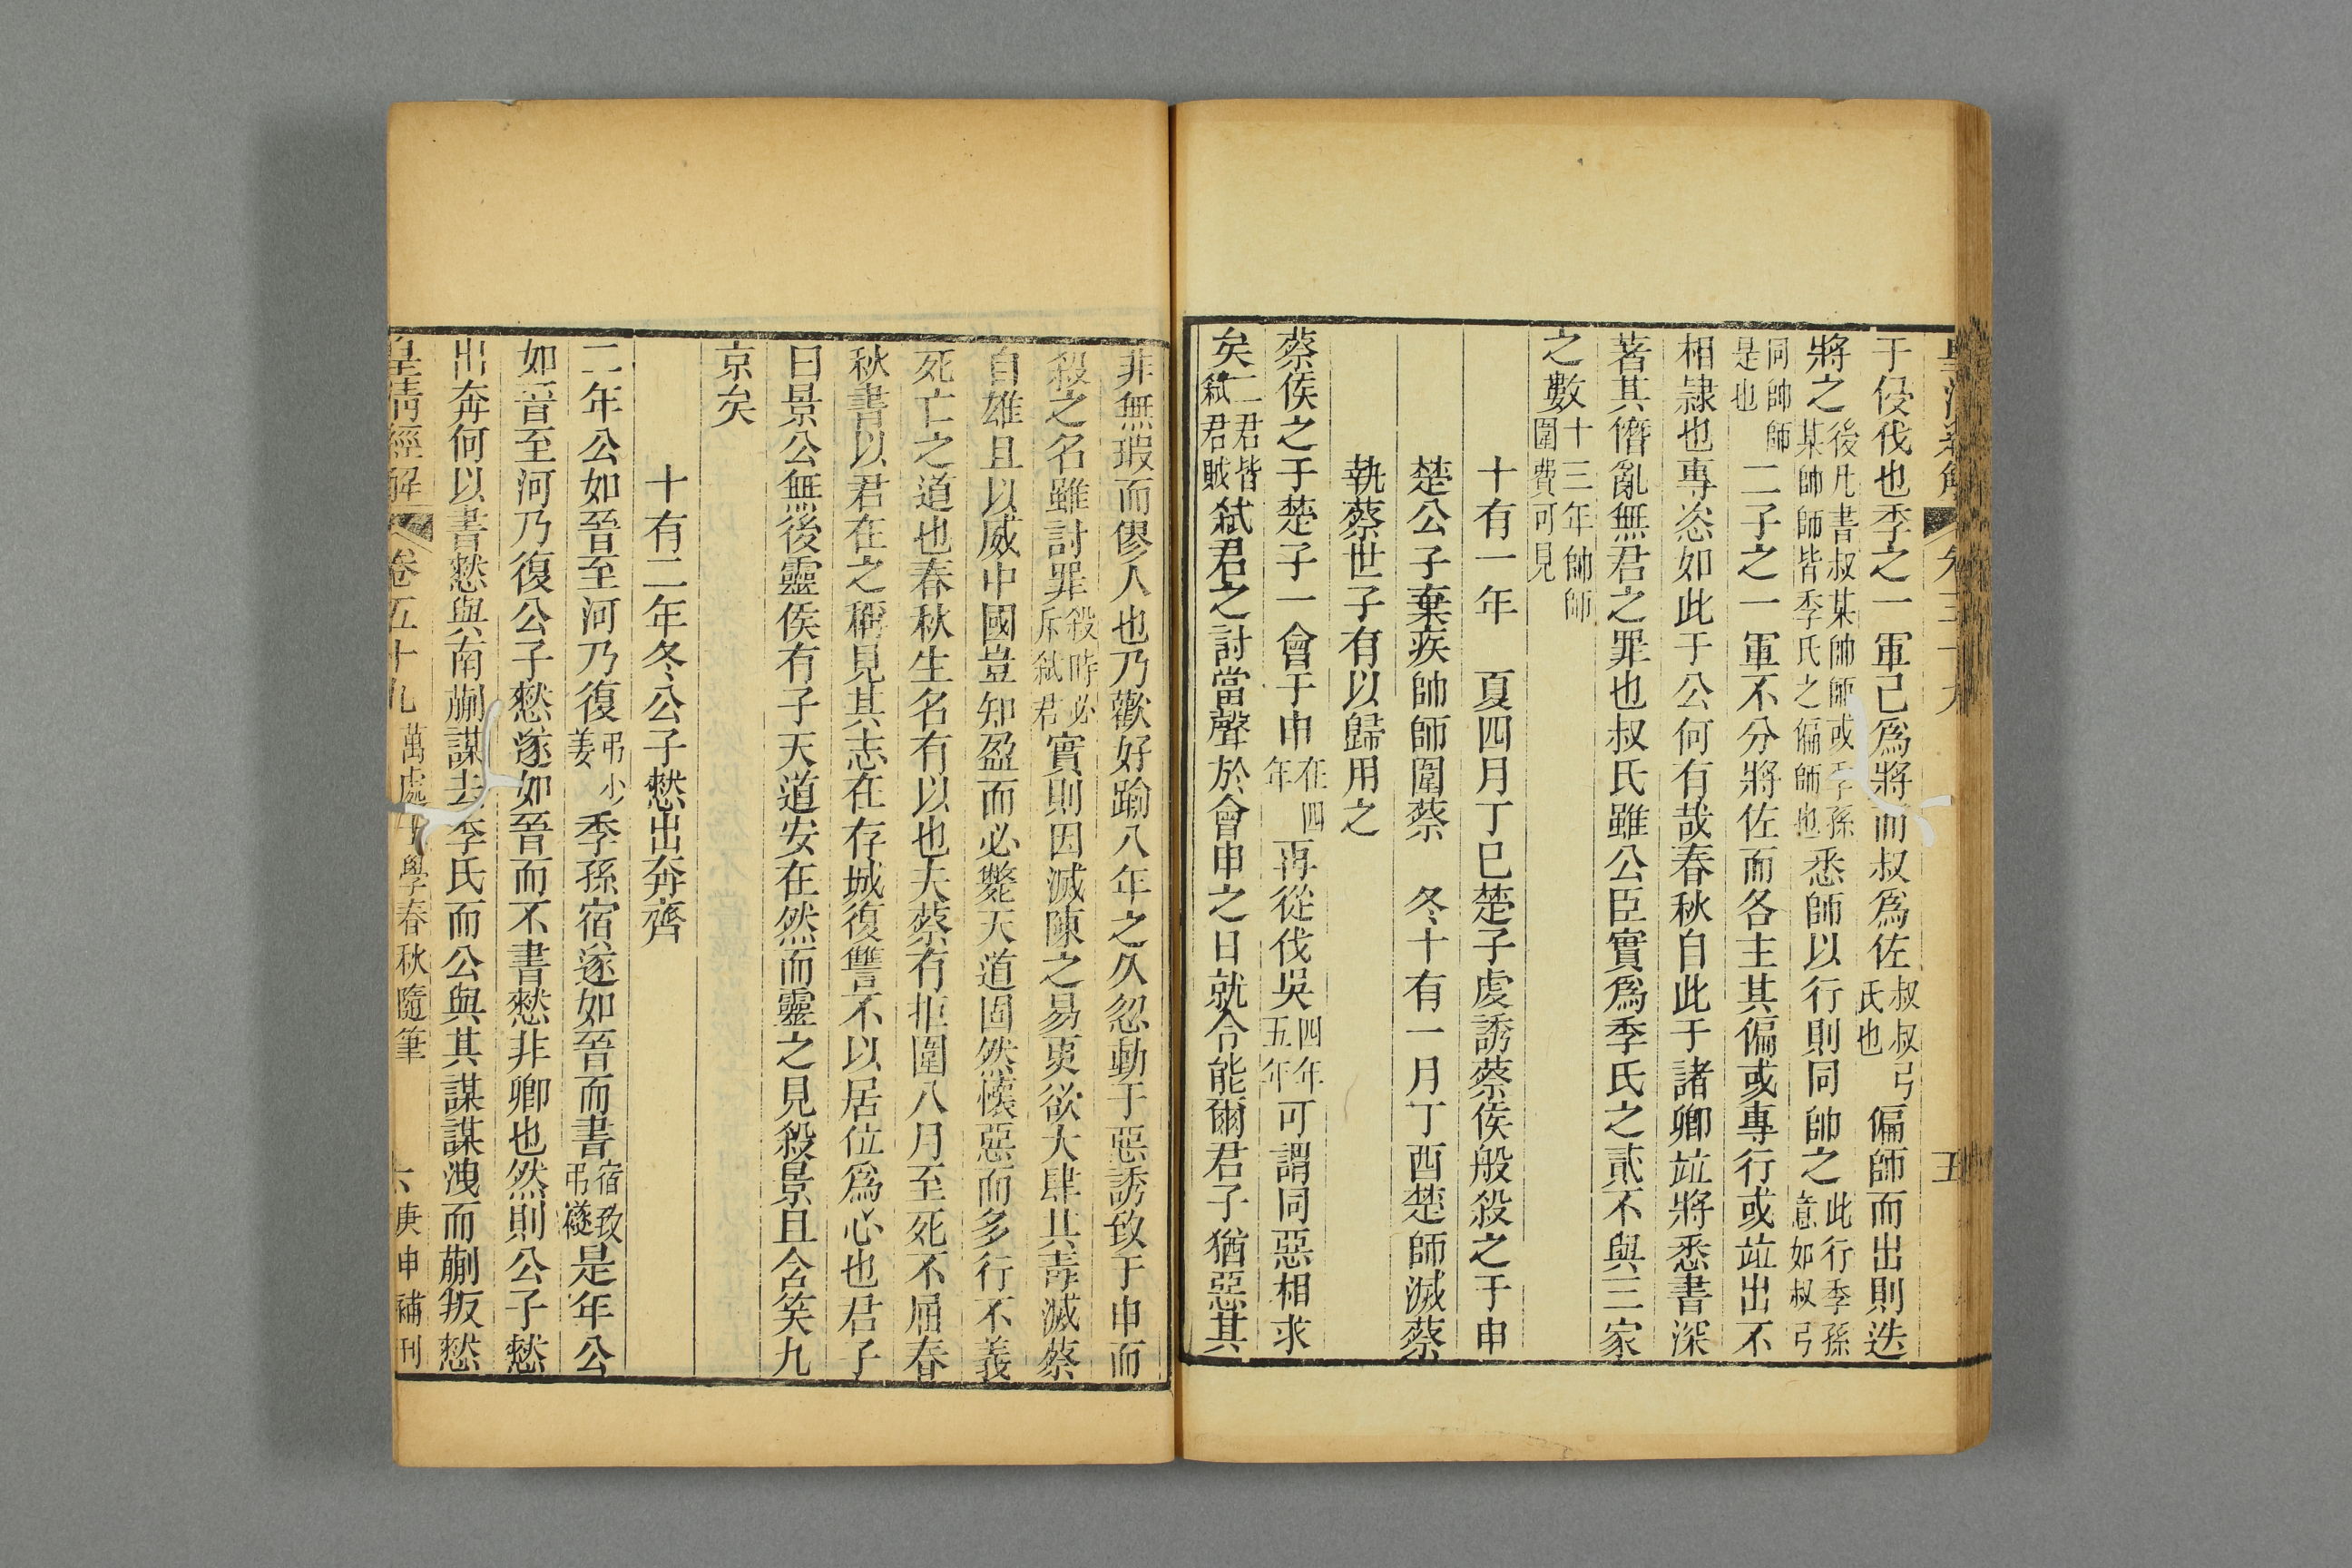 于侵伐也季之一軍己爲將而叔爲佐叔叔弓氏也偏師而出則迭
將之後凡書叔某帥師或季孫某帥師皆季氏之偏師也悉師以行則同帥之此行季孫意如叔弓
同帥師是也二子之一軍不分將佐而各主其偏或專行或竝出不
相隷也專恣如此于公何有哉春秋自此于諸卿竝將悉書深
著其僭亂無君之罪也叔氏雖公臣實爲季氏之貳不與三家
之數十三年帥師圍費可見
十有一年 夏四月丁巳楚子虔誘蔡侯般殺之于申
楚公子棄疾帥師圍蔡 冬十有一月丁酉楚師滅蔡
執蔡世子有以歸用之
蔡侯之于楚子一會于申在四年再從伐吳四年五年可謂同惡相求
矣二君皆弒君賊弒君之討當聲於會申之日就令能爾君子猶惡其
非無瑕而僇人也乃歡好踰八年之久忽動于惡誘致于申而
殺之名雖討罪殺時必斥弒君實則因滅陳之易更欲大肆其毒滅蔡
自雄且以威中國豈知盈而必斃天道固然懷惡而多行不義
死亡之道也春秋生名有以也夫蔡有拒圍八月至死不屈春
秋書以君在之稱見其志在存城復讐不以居位爲心也君子
曰景公無後靈侯有子天道安在然而靈之見殺景且含笑九
京矣
十有二年冬公子憖出奔齊
二年公如晉至河乃復弔少姜季孫宿遂如晉而書宿致弔襚是年公
如晉至河乃復公子憖遂如晉而不書憖非卿也然則公子憖
出奔何以書憖與南蒯謀去季氏而公與其謀謀洩而蒯叛憖
皇清經解 卷五十九 萬處士學春秋隨筆 六 庚申補刊